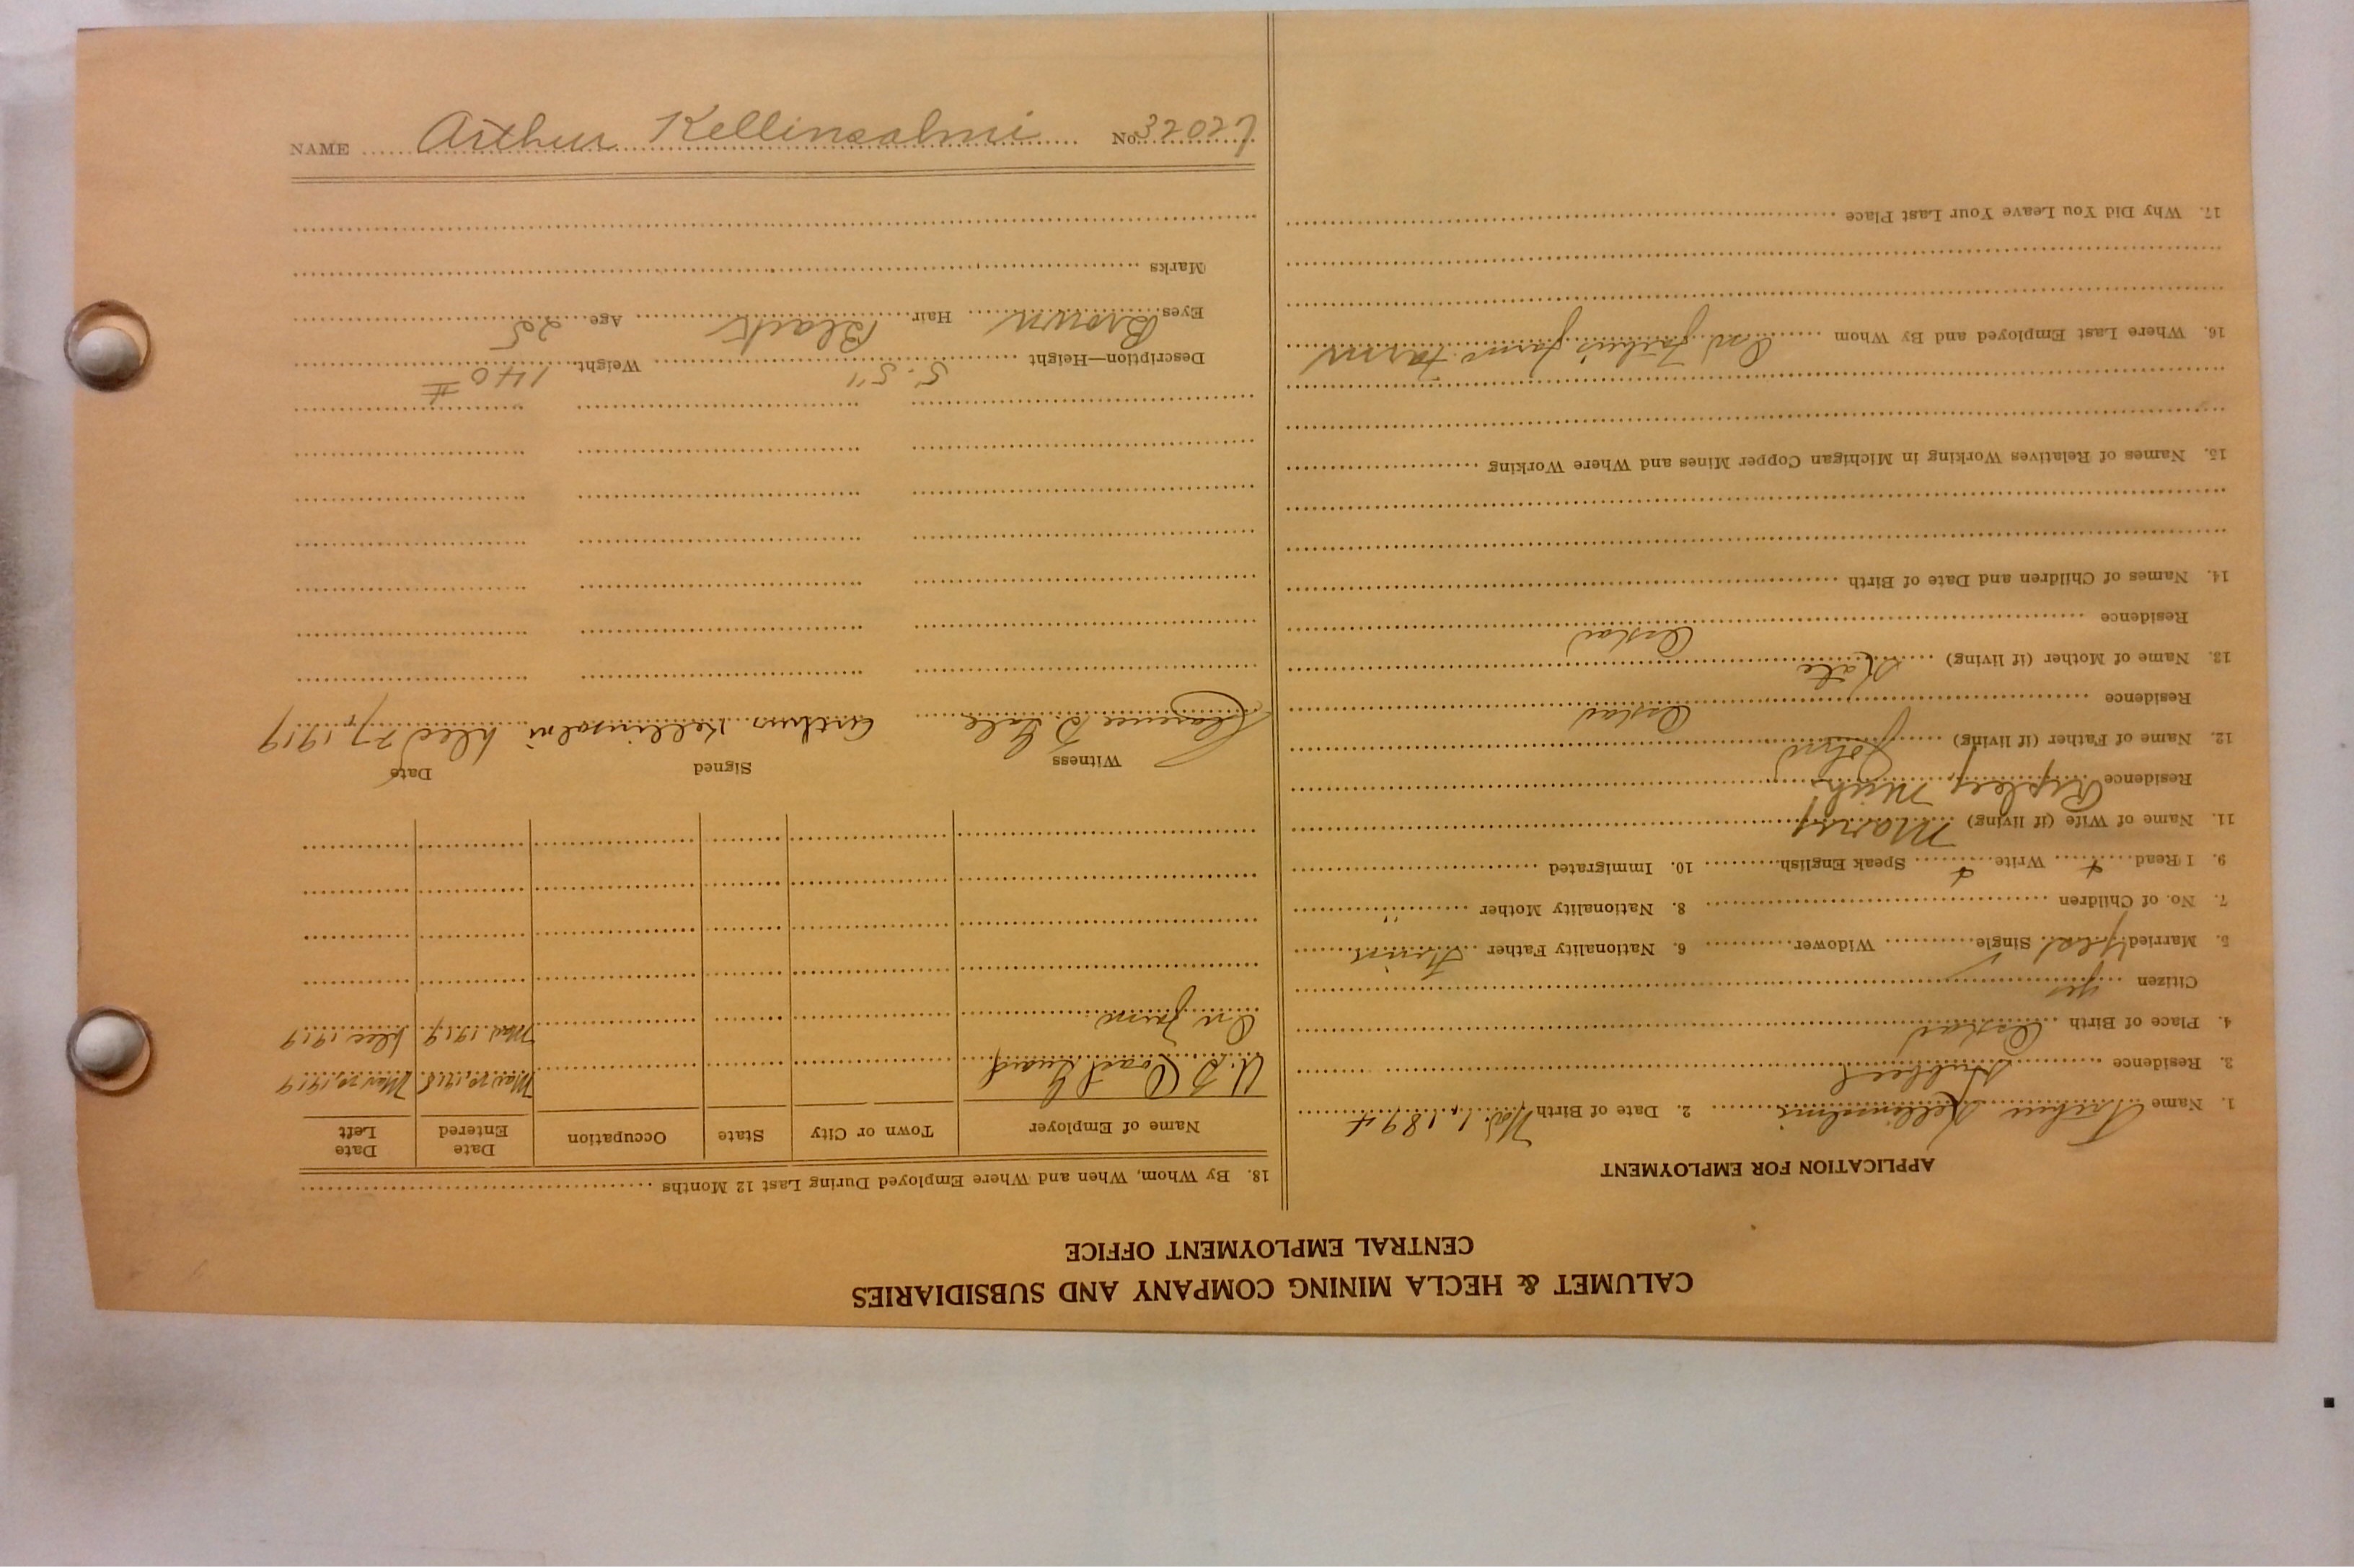 NAME Arthur Kellinsalmi No. 32027
CALUMET & HECLA MINING COMPANY AND SUBSIDIARIES
CENTRAL EMPLOYMENT OFFICE
APPLICATION FOR EMPLOYMENT
1. Name Arthur Kellinsalmi 2. Date of Birth 1, 1894
3. Residence Hubbell
4. Place of Birth
Citizen yes
5. Married Single Widower 6. Nationality Father
7. No. of Children 8. Nationality Mother "
9. I Read Write Speak English 10. Immigrated
11. Name of Wife (if living) Mary
Residence Ripley Mich.
12. Name of Father (if living) John
Residence
13. Name of Mother (if living) Kate
Residence
14. Names of Children and Date of Birth
15. Names of Relatives Working in Michigan Copper Mines and Where Working
16. Where Last Employed and By Whom farm
17. Why Did You Leave Your Last Place
18. By Whom, When and Where Employed During Last 12 Months
Name of Employer Town or City State Occupation Date Entered Date Left
U.S. Coast Guard 1918 1919
On farm 1919 Dec 1919
Witness Signed Date
Clarence Arthur Kellinsalmi Dec 27, 1919
Description—Height 5.5" Weight 140 #
Eyes Brown Hair Black Age 25
Marks